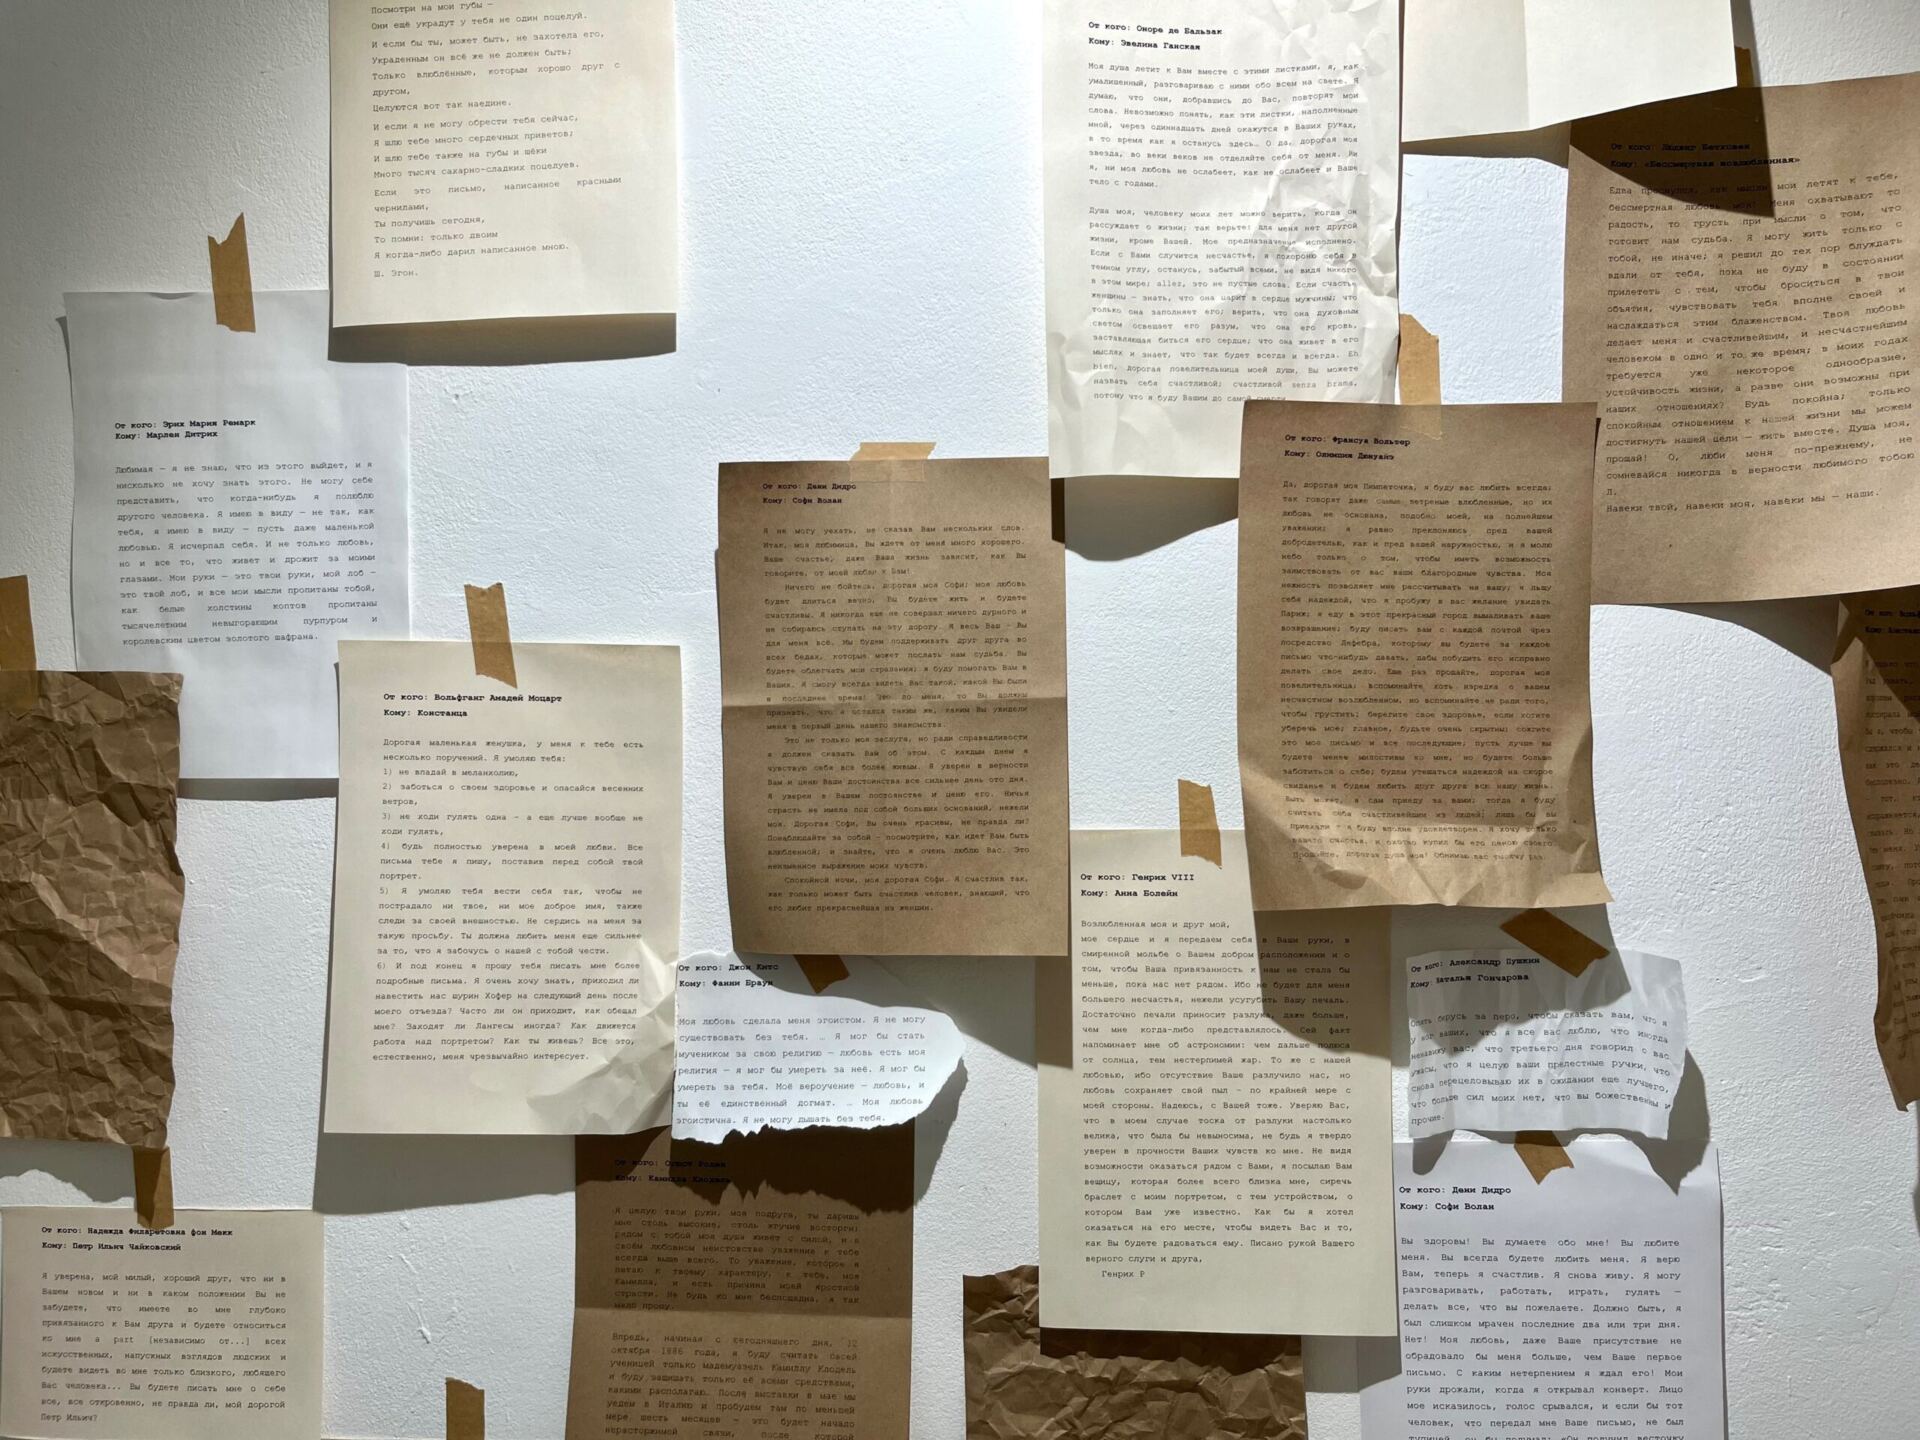 Посмотри на мои губы –
Они ещё украдут у тебя не один поцелуй.
И если бы ты, может быть, не захотела его,
Украденным он всё же не должен быть;
Только влюблённые, которым хорошо друг с
другом,
Целуются вот так наедине.
И если я не могу обрести тебя сейчас,
Я шлю тебе много сердечных приветов;
И шлю тебе также на губы и щёки
Много тысяч сахарно-сладких поцелуев.
Если это письмо, написанное красными
чернилами,
Ты получишь сегодня,
То помни: только двоим
Я когда-либо дарил написанное мною.
Ш. Эгон.
От кого: Оноре де Бальзак
Кому: Эвелина Ганская
Моя душа летит к Вам вместе с этими листками, я, как
умалишенный, разговариваю с ними обо всем на свете. Я
думаю, что они, добравшись до Вас, повторят мои
слова. Невозможно понять, как эти листки, наполненные
мной, через одиннадцать дней окажутся в Ваших руках,
в то время как я останусь здесь… О да, дорогая моя
звезда, во веки веков не отделяйте себя от меня. Ни
я, ни моя любовь не ослабеет, как не ослабеет и Ваше
тело с годами.
Душа моя, человеку моих лет можно верить, когда он
рассуждает о жизни; так верьте: для меня нет другой
жизни, кроме Вашей. Мое предназначение исполнено.
Если с Вами случится несчастье, я похороню себя в
темном углу, останусь, забытый всеми, не видя никого
в этом мире; allez, это не пустые слова. Если счастье
женщины – знать, что она царит в сердце мужчины; что
только она заполняет его; верить, что она духовным
светом освещает его разум, что она его кровь,
заставляющая биться его сердце; что она живет в его
мыслях и знает, что так будет всегда и всегда. Eh
bien, дорогая повелительница моей души, Вы можете
назвать себя счастливой; счастливой senza brama,
потому что я буду Вашим до самой смерти.
От кого: Людвиг Бетховен
Кому: «Бессмертная возлюбленная»
Едва проснулся, как мысли мои летят к тебе,
бессмертная любовь моя! Меня охватывают то
радость, то грусть при мысли о том, что
готовит нам судьба. Я могу жить только с
тобой, не иначе; я решил до тех пор блуждать
вдали от тебя, пока не буду в состоянии
прилететь с тем, чтобы броситься в твои
объятия, чувствовать тебя вполне своей и
наслаждаться этим блаженством. Твоя любовь
делает меня и счастливейшим, и несчастнейшим
человеком в одно и то же время; в моих годах
требуется уже некоторое однообразие,
устойчивость жизни, а разве они возможны при
наших отношениях? Будь покойна; только
спокойным отношением к нашей жизни мы можем
достигнуть нашей цели – жить вместе. Душа моя,
прощай! О, люби меня по-прежнему, не
сомневайся никогда в верности любимого тобою
Л.
Навеки твой, навеки моя, навеки мы – наши.
От кого: Эрих Мария Ремарк
Кому: Марлен Дитрих
Любимая – я не знаю, что из этого выйдет, и я
нисколько не хочу знать этого. Не могу себе
представить, что когда-нибудь я полюблю
другого человека. Я имею в виду – не так, как
тебя, я имею в виду – пусть даже маленькой
любовью. Я исчерпал себя. И не только любовь,
но и все то, что живет и дрожит за моими
глазами. Мои руки – это твои руки, мой лоб –
это твой лоб, и все мои мысли пропитаны тобой,
как белые холстины коптов пропитаны
тысячелетним невыгорающим пурпуром и
королевским цветом золотого шафрана.
От кого: Дени Дидро
Кому: Софи Волан
Я не могу уехать, не сказав Вам нескольких слов.
Итак, моя любимица, Вы ждете от меня много хорошего.
Ваше счастье, даже Ваша жизнь зависит, как Вы
говорите, от моей любви к Вам!
Ничего не бойтесь, дорогая моя Софи; моя любовь
будет длиться вечно, Вы будете жить и будете
счастливы. Я никогда еще не совершал ничего дурного и
не собираюсь ступать на эту дорогу. Я весь Ваш – Вы
для меня всё. Мы будем поддерживать друг друга во
всех бедах, которые может послать нам судьба. Вы
будете облегчать мои страдания; я буду помогать Вам в
Ваших. Я смогу всегда видеть Вас такой, какой Вы были
в последнее время! Что до меня, то Вы должны
признать, что я остался таким же, каким Вы увидели
меня в первый день нашего знакомства.
Это не только моя заслуга, но ради справедливости
я должен сказать Вам об этом. С каждым днем я
чувствую себя все более живым. Я уверен в верности
Вам и ценю Ваши достоинства все сильнее день ото дня.
Я уверен в Вашем постоянстве и ценю его. Ничья
страсть не имела под собой больших оснований, нежели
моя. Дорогая Софи, Вы очень красивы, не правда ли?
Понаблюдайте за собой – посмотрите, как идет Вам быть
влюбленной; и знайте, что я очень люблю Вас. Это
неизменное выражение моих чувств.
Спокойной ночи, моя дорогая Софи. Я счастлив так,
как только может быть счастлив человек, знающий, что
его любит прекраснейшая из женщин.
От кого: Франсуа Вольтер
Кому: Олимпия Дюнуайэ
Да, дорогая моя Пимпеточка, я буду вас любить всегда;
так говорят даже самые ветреные влюбленные, но их
любовь не основана, подобно моей, на полнейшем
уважении; я равно преклоняюсь пред вашей
добродетелью, как и пред вашей наружностью, и я молю
небо только о том, чтобы иметь возможность
заимствовать от вас ваши благородные чувства. Моя
нежность позволяет мне рассчитывать на вашу; я льщу
себя надеждой, что я пробужу в вас желание увидать
Париж; я еду в этот прекрасный город вымаливать ваше
возвращение; буду писать вам с каждой почтой чрез
посредство Лефебра, которому вы будете за каждое
письмо что-нибудь давать, дабы побудить его исправно
делать свое дело. Еще раз прощайте, дорогая моя
повелительница; вспоминайте хоть изредка о вашем
несчастном возлюбленном, но вспоминайте не ради того,
чтобы грустить; берегите свое здоровье, если хотите
уберечь мое; главное, будьте очень скрытны; сожгите
это мое письмо и все последующие; пусть лучше вы
будете менее милостивы ко мне, но будете больше
заботиться о себе; будем утешаться надеждой на скорое
свиданье и будем любить друг друга всю нашу жизнь.
Быть может, я сам приеду за вами; тогда я буду
считать себя счастливейшим из людей; лишь бы вы
приехали – я буду вполне удовлетворен. Я хочу только
вашего счастья, я охотно купил бы его ценою своего.
Прощайте, дорогая душа моя! Обнимаю вас тысячу раз.
От кого: Вольфганг Амадей Моцарт
Кому: Констанца
Дорогая маленькая женушка, у меня к тебе есть
несколько поручений. Я умоляю тебя:
1) не впадай в меланхолию,
2) заботься о своем здоровье и опасайся весенних
ветров,
3) не ходи гулять одна – а еще лучше вообще не
ходи гулять,
4) будь полностью уверена в моей любви. Все
письма тебе я пишу, поставив перед собой твой
портрет.
5) Я умоляю тебя вести себя так, чтобы не
пострадало ни твое, ни мое доброе имя, также
следи за своей внешностью. Не сердись на меня за
такую просьбу. Ты должна любить меня еще сильнее
за то, что я забочусь о нашей с тобой чести.
6) И под конец я прошу тебя писать мне более
подробные письма. Я очень хочу знать, приходил ли
навестить нас шурин Хофер на следующий день после
моего отъезда? Часто ли он приходит, как обещал
мне? Заходят ли Лангесы иногда? Как движется
работа над портретом? Как ты живешь? Все это,
естественно, меня чрезвычайно интересует.
От кого: Джон Китс
Кому: Фанни Браун
Моя любовь сделала меня эгоистом. Я не могу
существовать без тебя. … Я мог бы стать
мучеником за свою религию – любовь есть моя
религия – я мог бы умереть за неё. Я мог бы
умереть за тебя. Моё вероучение – любовь, и
ты её единственный догмат. … Моя любовь
эгоистична. Я не могу дышать без тебя.
От кого: Генрих VIII
Кому: Анна Болейн
Возлюбленная моя и друг мой,
мое сердце и я передаем себя в Ваши руки, в
смиренной мольбе о Вашем добром расположении и о
том, чтобы Ваша привязанность к нам не стала бы
меньше, пока нас нет рядом. Ибо не будет для меня
большего несчастья, нежели усугубить Вашу печаль.
Достаточно печали приносит разлука, даже больше,
чем мне когда-либо представлялось. Сей факт
напоминает мне об астрономии: чем дальше полюса
от солнца, тем нестерпимей жар. То же с нашей
любовью, ибо отсутствие Ваше разлучило нас, но
любовь сохраняет свой пыл – по крайней мере с
моей стороны. Надеюсь, с Вашей тоже. Уверяю Вас,
что в моем случае тоска от разлуки настолько
велика, что была бы невыносима, не будь я твердо
уверен в прочности Ваших чувств ко мне. Не видя
возможности оказаться рядом с Вами, я посылаю Вам
вещицу, которая более всего близка мне, сиречь
браслет с моим портретом, с тем устройством, о
котором Вам уже известно. Как бы я хотел
оказаться на его месте, чтобы видеть Вас и то,
как Вы будете радоваться ему. Писано рукой Вашего
верного слуги и друга,
Генрих Р
От кого: Александр Пушкин
Кому: Наталья Гончарова
Опять берусь за перо, чтобы сказать вам, что я
у ног ваших, что я все вас люблю, что иногда
ненавижу вас, что третьего дня говорил о вас
ужасы, что я целую ваши прелестные ручки, что
снова перецеловываю их в ожидании еще лучшего,
что больше сил моих нет, что вы божественны и
прочие.
От кого: Огюст Роден
Кому: Камилла Клодель
Я целую твои руки, моя подруга, ты даришь
мне столь высокие, столь жгучие восторги;
рядом с тобой моя душа живёт с силой, и в
своём любовном неистовстве уважение к тебе
всегда выше всего. То уважение, которое я
питаю к твоему характеру, к тебе, моя
Камилла, и есть причина моей яростной
страсти. Не будь ко мне беспощадна, я так
мало прошу.
Впредь, начиная с сегодняшнего дня, 12
октября 1886 года, я буду считать своей
ученицей только мадемуазель Камиллу Клодель
и буду защищать только её всеми средствами,
какими располагаю. После выставки в мае мы
уедем в Италию и пробудем там по меньшей
мере шесть месяцев – это будет начало
нерасторжимой связи, после которой
От кого: Надежда Филаретовна фон Мекк
Кому: Петр Ильич Чайковский
Я уверена, мой милый, хороший друг, что ни в
Вашем новом и ни в каком положении Вы не
забудете, что имеете во мне глубоко
привязанного к Вам друга и будете относиться
ко мне a part [независимо от...] всех
искусственных, напускных взглядов людских и
будете видеть во мне только близкого, любящего
Вас человека... Вы будете писать мне о себе
все, все откровенно, не правда ли, мой дорогой
Петр Ильич?
От кого: Дени Дидро
Кому: Софи Волан
Вы здоровы! Вы думаете обо мне! Вы любите
меня. Вы всегда будете любить меня. Я верю
Вам, теперь я счастлив. Я снова живу. Я могу
разговаривать, работать, играть, гулять –
делать все, что вы пожелаете. Должно быть, я
был слишком мрачен последние два или три дня.
Нет! Моя любовь, даже Ваше присутствие не
обрадовало бы меня больше, чем Ваше первое
письмо. С каким нетерпением я ждал его! Мои
руки дрожали, когда я открывал конверт. Лицо
мое исказилось, голос срывался, и если бы тот
человек, что передал мне Ваше письмо, не был
тупицей, он бы подумал: «Он получил весточку